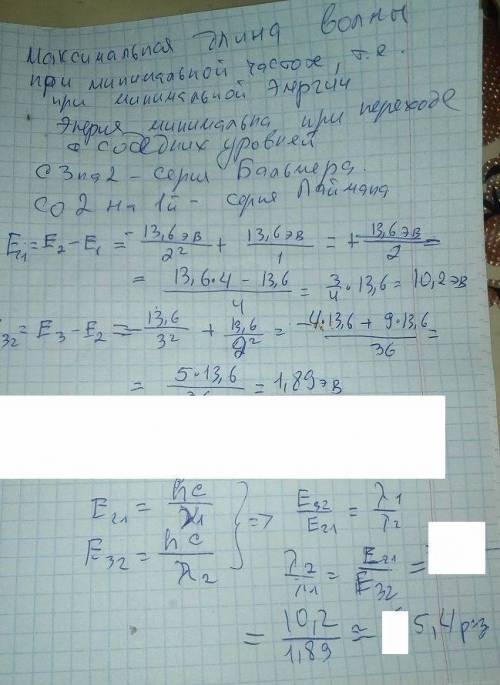 Максимальная длина волны
при минимальной частоте, т.е.
при минимальной энергии
Энергия минимальна при переходе
с соседних уровней
С 3 на 2 - серия Бальмера.
Со 2 на 1й - серия Лаймана
E₂₁ = E₂ - E₁ = -13,6 эВ/2² + 13,6 эВ/1 = + 13,6 эВ/2 =
= (13,6·4 - 13,6)/4 = 3/4 · 13,6 = 10,2 эВ
₃₂ = E₃ - E₂ = -13,6/3² + 13,6/2² = (-4·13,6 + 9·13,6)/36 =
= 5·13,6/36 = 1,89 эВ
E₂₁ = hc/λ₁ } => E₃₂/E₂₁ = λ₁/λ₂
E₃₂ = hc/λ₂ λ₂/λ₁ = E₂₁/E₃₂ =
= 10,2/1,89 ≈ 5,4 раз